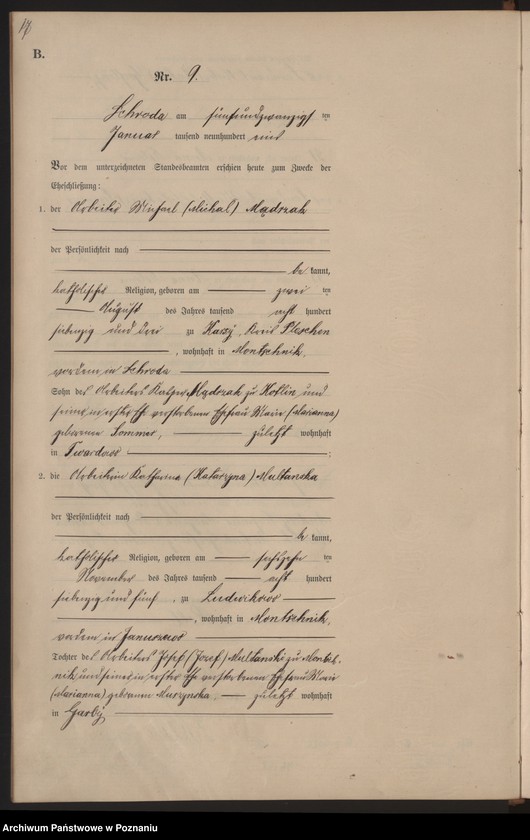 B.
Nr. 9.
Schroda am fünfundzwanzigsten
Januar tausend neunhundert eins
Vor dem unterzeichneten Standesbeamten erschien heute zum Zwecke der
Eheschließung:
1. der Arbeiter Michael (Michal) Mądrzak
der Persönlichkeit nach
be kannt,
katholischer Religion, geboren am zwei ten
August des Jahres tausend acht hundert
siebenzig und drei zu Karzy, Kreis Pleschen
, wohnhaft in Montschnik,
vordem in Schroda
Sohn des Arbeiters Mądrzak zu Koblin und
seiner in erster Ehe verstorbenen Ehefrau Marie (Marianna)
geborene Sommer, zuletzt wohnhaft
in Twardowo ;
2. die Arbeiterin Katharina (Katarzyna) Multanska
der Persönlichkeit nach
be kannt,
katholischer Religion, geboren am sechszehn ten
November des Jahres tausend acht hundert
siebenzig und fünf, zu Ludwikowo
, wohnhaft in Montschnik,
vordem in Januszewo
Tochter des Arbeiters Josef (Jozef) Multanski zu Montsch-
nik und seiner in erster Ehe verstorbenen Ehefrau Marie
(Marianna) geborenen Muszynska, zuletzt wohnhaft
in Garby
Archiwum Państwowe w Poznaniu